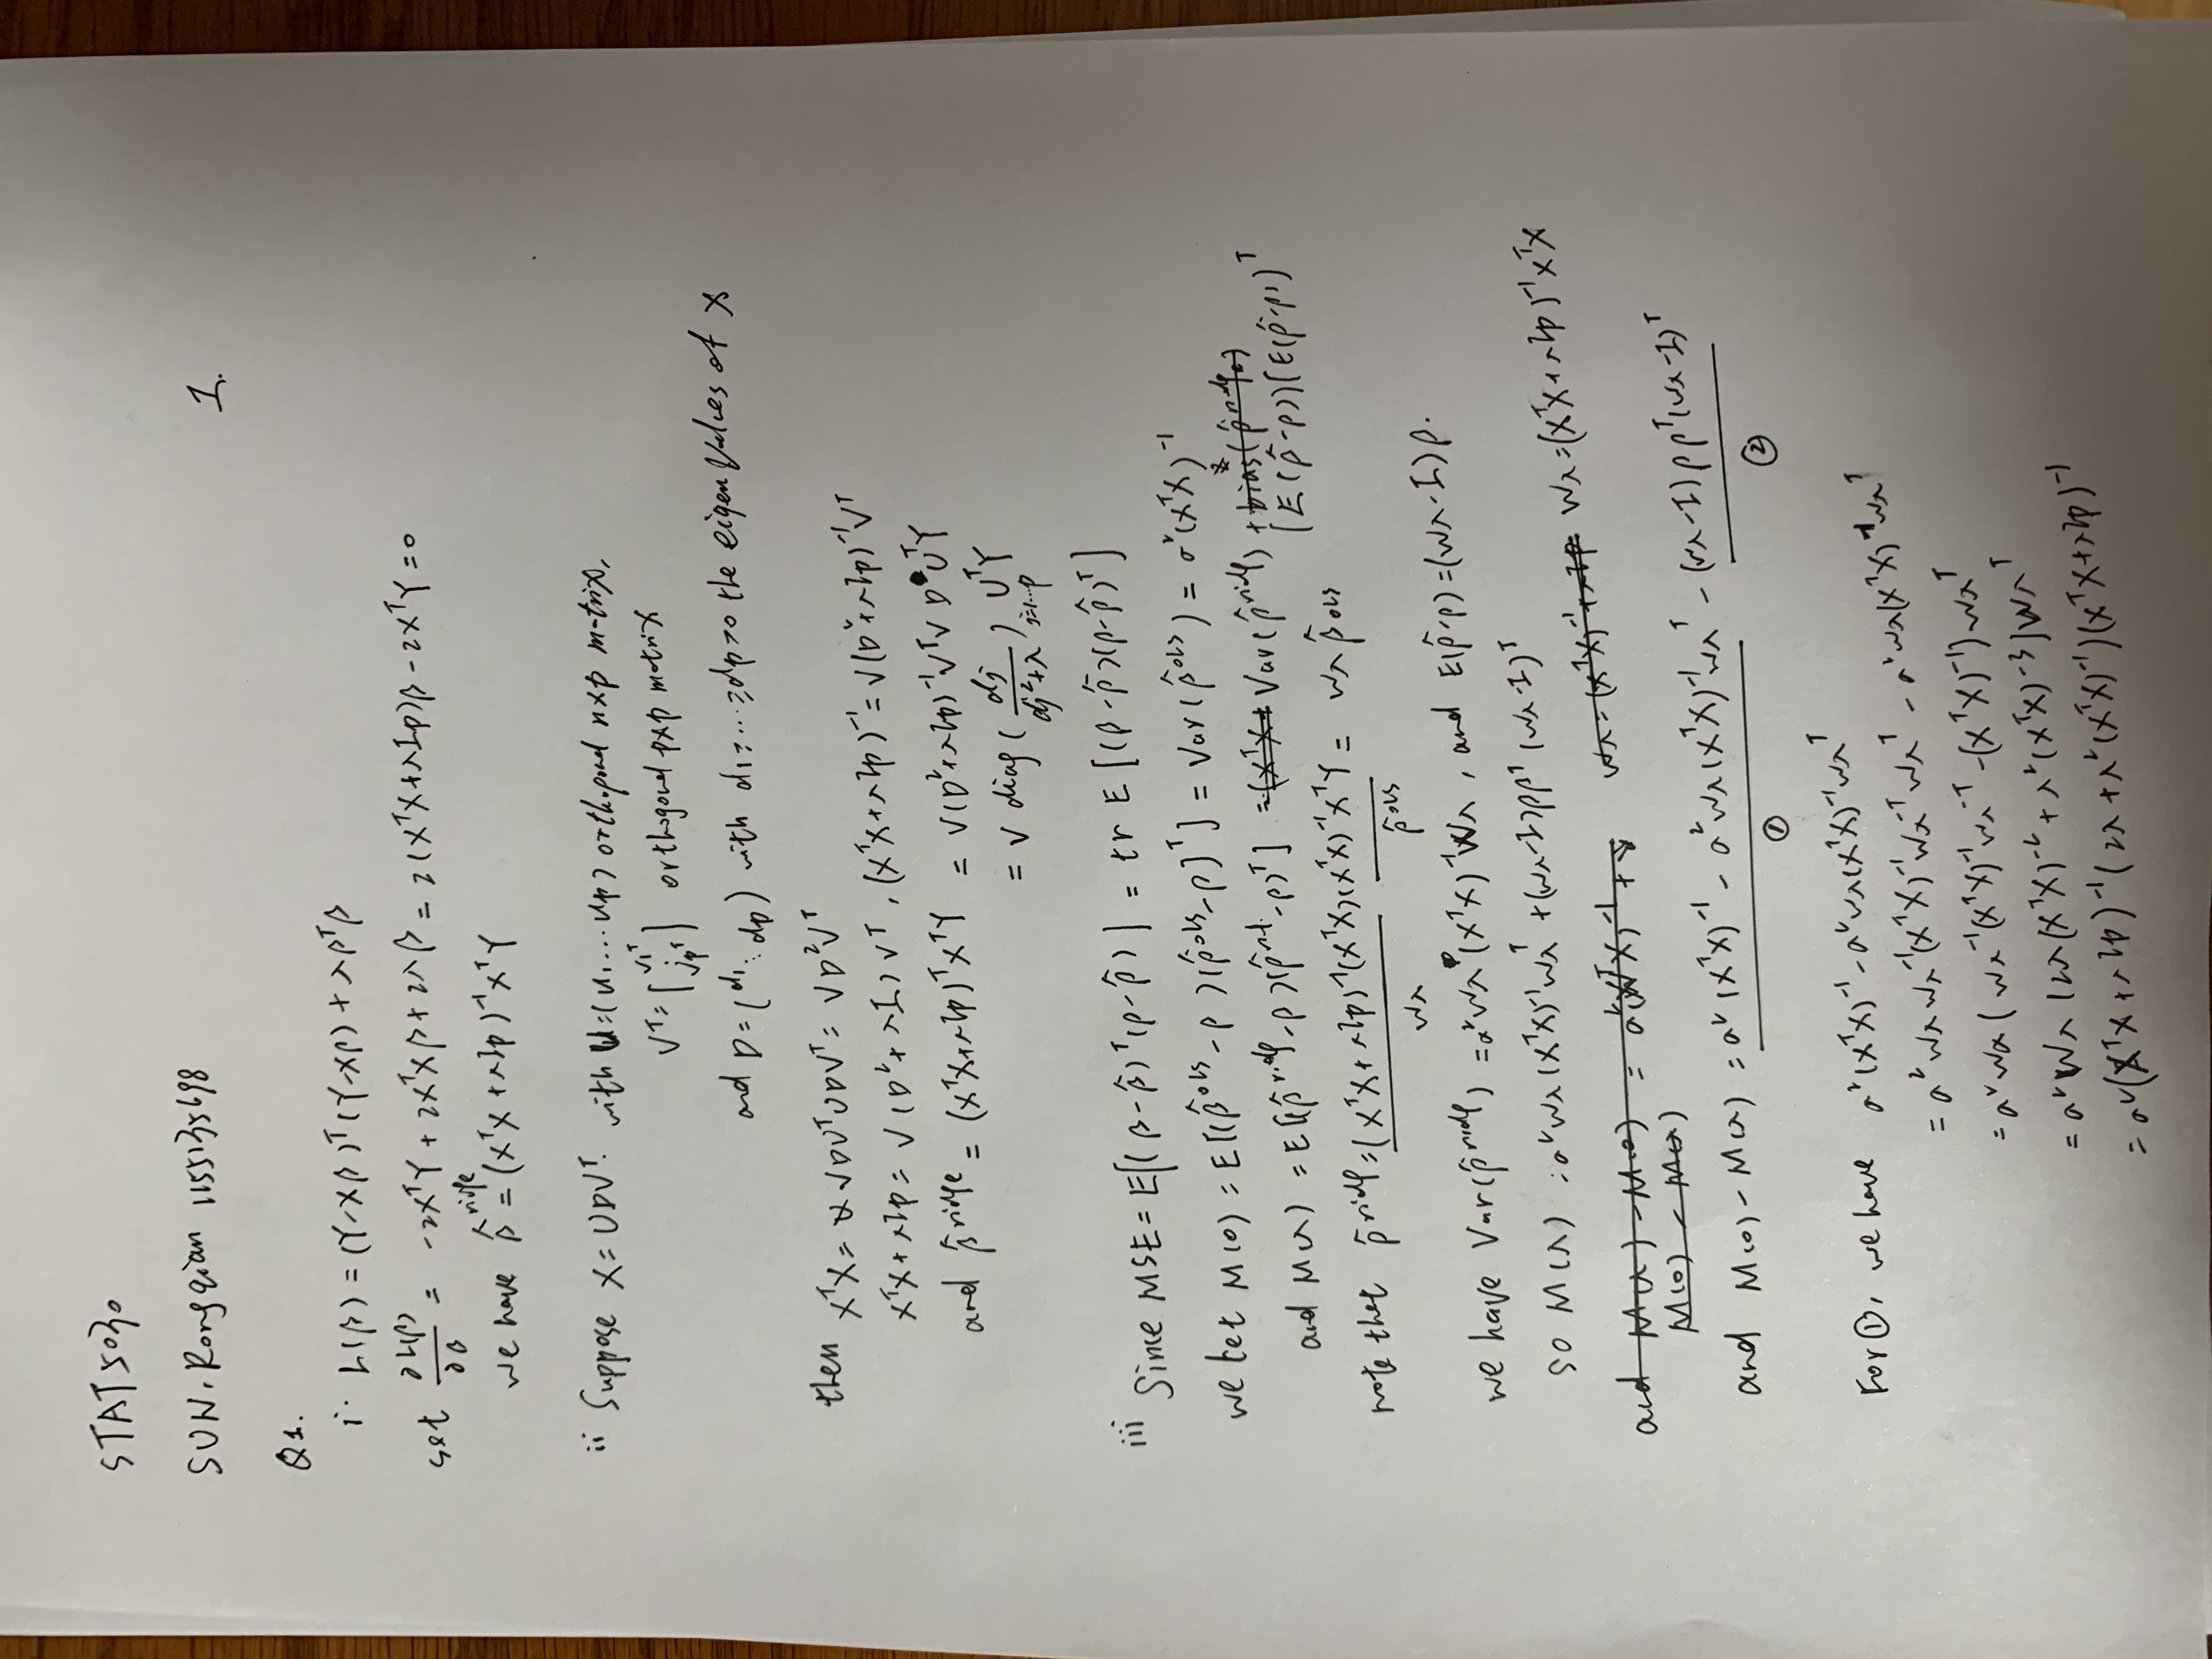 STAT5030
SUN, Rongqian 1155135698
1.
Q1.
i. L(β) = (Y-Xβ)ᵀ(Y-Xβ) + λβᵀβ
set ∂L(β)/∂β = -2XᵀY + 2XᵀXβ + 2λβ = 2(XᵀX+λIp)β - 2XᵀY = 0
we have β̂^ridge = (XᵀX + λIp)⁻¹XᵀY
ii Suppose X = UDVᵀ. with U=(u₁...up) orthogonal n×p matrix,
Vᵀ = [v₁ᵀ ⋮ vpᵀ] orthogonal p×p matrix
and D = (d₁ ⋱ dp) with d₁≥...≥dp>0 the eigenvalues of X
then XᵀX = VDUᵀUDVᵀ = VD²Vᵀ
XᵀX+λIp = V(D²+λI)Vᵀ, (XᵀX+λIp)⁻¹ = V(D²+λIp)⁻¹Vᵀ
and β̂^ridge = (XᵀX+λIp)ᵀXᵀY = V(D²+λIp)⁻¹VᵀV D UᵀY
= V diag(dj/(dj²+λ))j=1...p UᵀY
iii Since MSE = E[(β-β̂)ᵀ(β-β̂)] = tr E[(β-β̂)(β-β̂)ᵀ]
we let M(0) = E[(β̂^ols - β)(β̂^ols - β)ᵀ] = Var(β̂^ols) = σ²(XᵀX)⁻¹
and M(λ) = E[(β̂^ridge - β)(β̂^rid. - β)ᵀ] = Var(β̂^ridge) + [E(β̂-β)][E(β̂-β)]ᵀ
note that β̂^ridge = (XᵀX+λIp)⁻¹(XᵀX)(XᵀX)⁻¹XᵀY = Wλ β̂ols
Wλ β̂^ols
we have Var(β̂^ridge) = σ²Wλ(XᵀX)⁻¹Wλ, and E(β̂-β) = (Wλ-I)β.
so M(λ) = σ²Wλ(XᵀX)⁻¹Wλᵀ + (Wλ-I)ββᵀ(Wλ-I)ᵀ
and M(λ) - M(0) = σ²(XᵀX)⁻¹ + Wλ = (XᵀX)⁻¹+λIp Wλ = (XᵀX+λIp)⁻¹XᵀX
M(0) - M(λ)
and M(0) - M(λ) = σ²(XᵀX)⁻¹ - σ²Wλ(XᵀX)⁻¹Wλᵀ - (Wλ-I)ββᵀ(Wλ-I)ᵀ
① ②
For ①, we have σ²(XᵀX)⁻¹ - σ²Wλ(XᵀX)⁻¹Wλᵀ
= σ²WλWλ⁻¹(XᵀX)⁻¹Wλ⁻ᵀWλᵀ - σ²Wλ(XᵀX)⁻¹Wλᵀ
= σ²Wλ(Wλ⁻¹(XᵀX)⁻¹Wλ⁻ᵀ - (XᵀX)⁻¹)Wλᵀ
= σ²Wλ(2λ(XᵀX)⁻² + λ²(XᵀX)⁻³)Wλᵀ
= σ²(XᵀX+λIp)⁻¹(2λ+λ²(XᵀX)⁻¹)(XᵀX+λIp)⁻¹